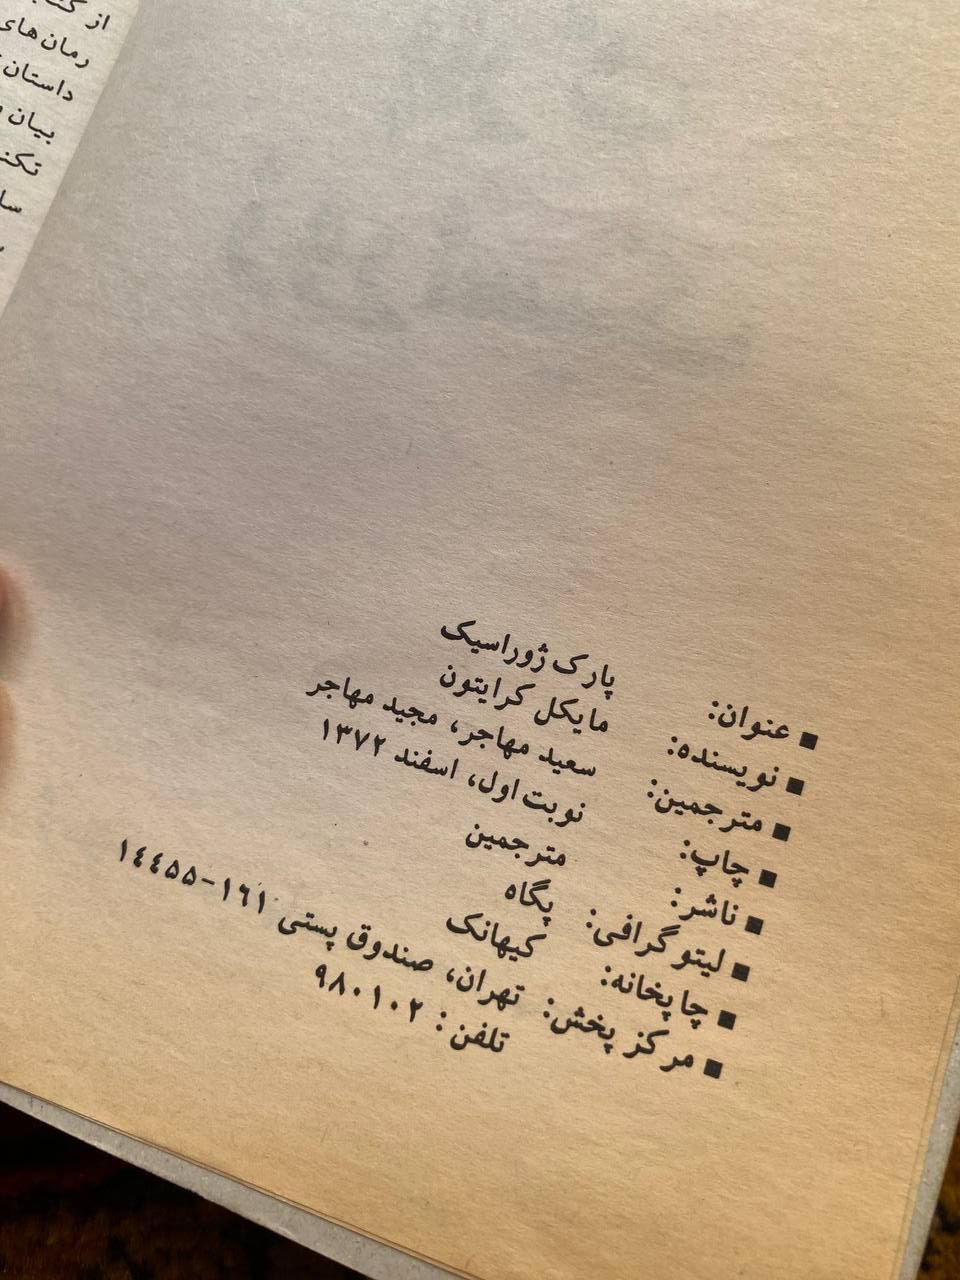 از
رمان‌های
داستان
بیان
■ عنوان: پارک ژوراسیک
■ نویسنده: مایکل کرایتون
■ مترجمین: سعید مهاجر، مجید مهاجر
■ چاپ: نوبت اول، اسفند ۱۳۷۲
■ ناشر: مترجمین
■ لیتوگرافی: پگاه
■ چاپخانه: کیهانک
■ مرکز پخش: تهران، صندوق پستی ۱۶۱-۱۴۴۵۵
تلفن: ۹۸۰۱۰۲